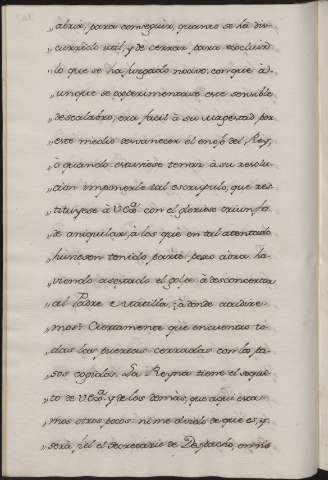 „abrir, para conseguir, quanto se há dis-
„currido util, y de cerrar para excluir
„lo que se ha juzgado nocivo: conque a-
„unque se experimentase este sensible
„descalabro, era facil à su magestad por
„este medio desvanecer el enojo del Rey,
„ò quando estuviese tenaz à su resolu-
„cion imponerle tal escrupulo, que res-
„tituyese à V Exª con el glorioso triunfo
„de aniquilar, à los que en tal atentado
„huviesen tenido parte: pero aora ha-
„viendo asestado el golpe à desconcertar
„al Padre e Vatilla, ¿à donde acudire-
„mos? Ciertamente que encuentro to-
„das las puertas cerradas con los pa-
„sos cogidos. La Reyna tiene el sequi-
„to de V Exª y de los demàs, que aqui esta-
„mos otros pocos: ni me olvido de que es, y
„serà fiel el Secretario de Despacho, en no